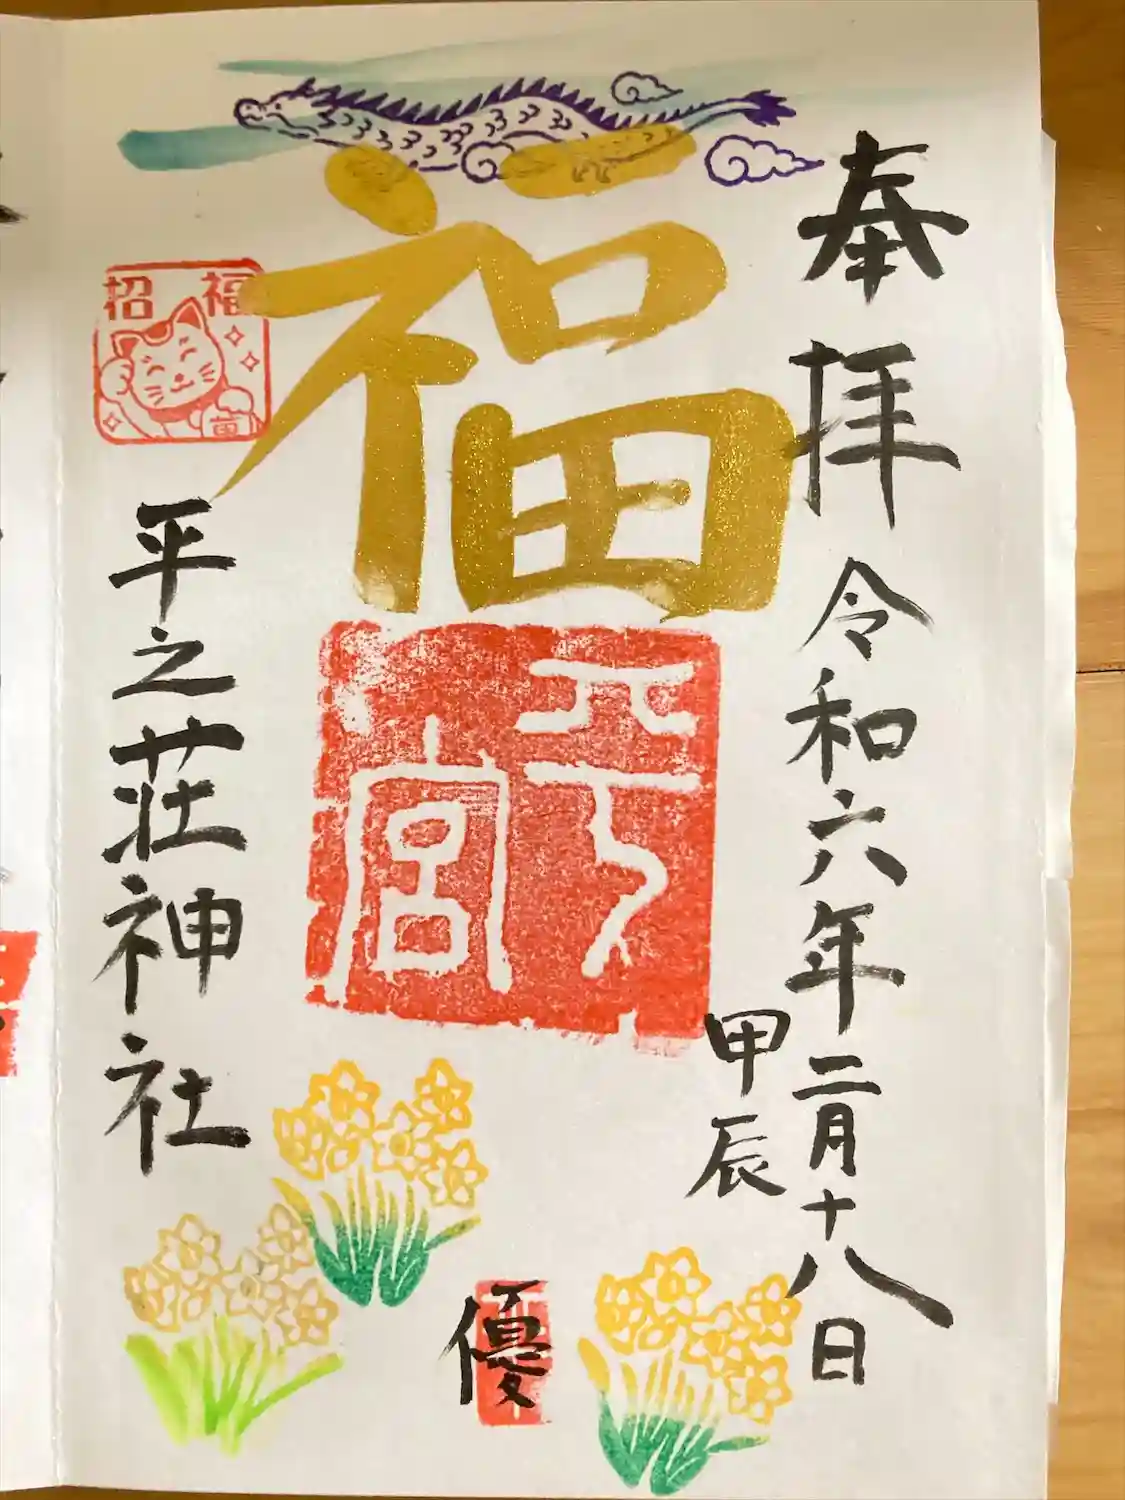 奉拝
令和六年二月十八日
甲辰
福
平之宮
招福
平之荘神社
優